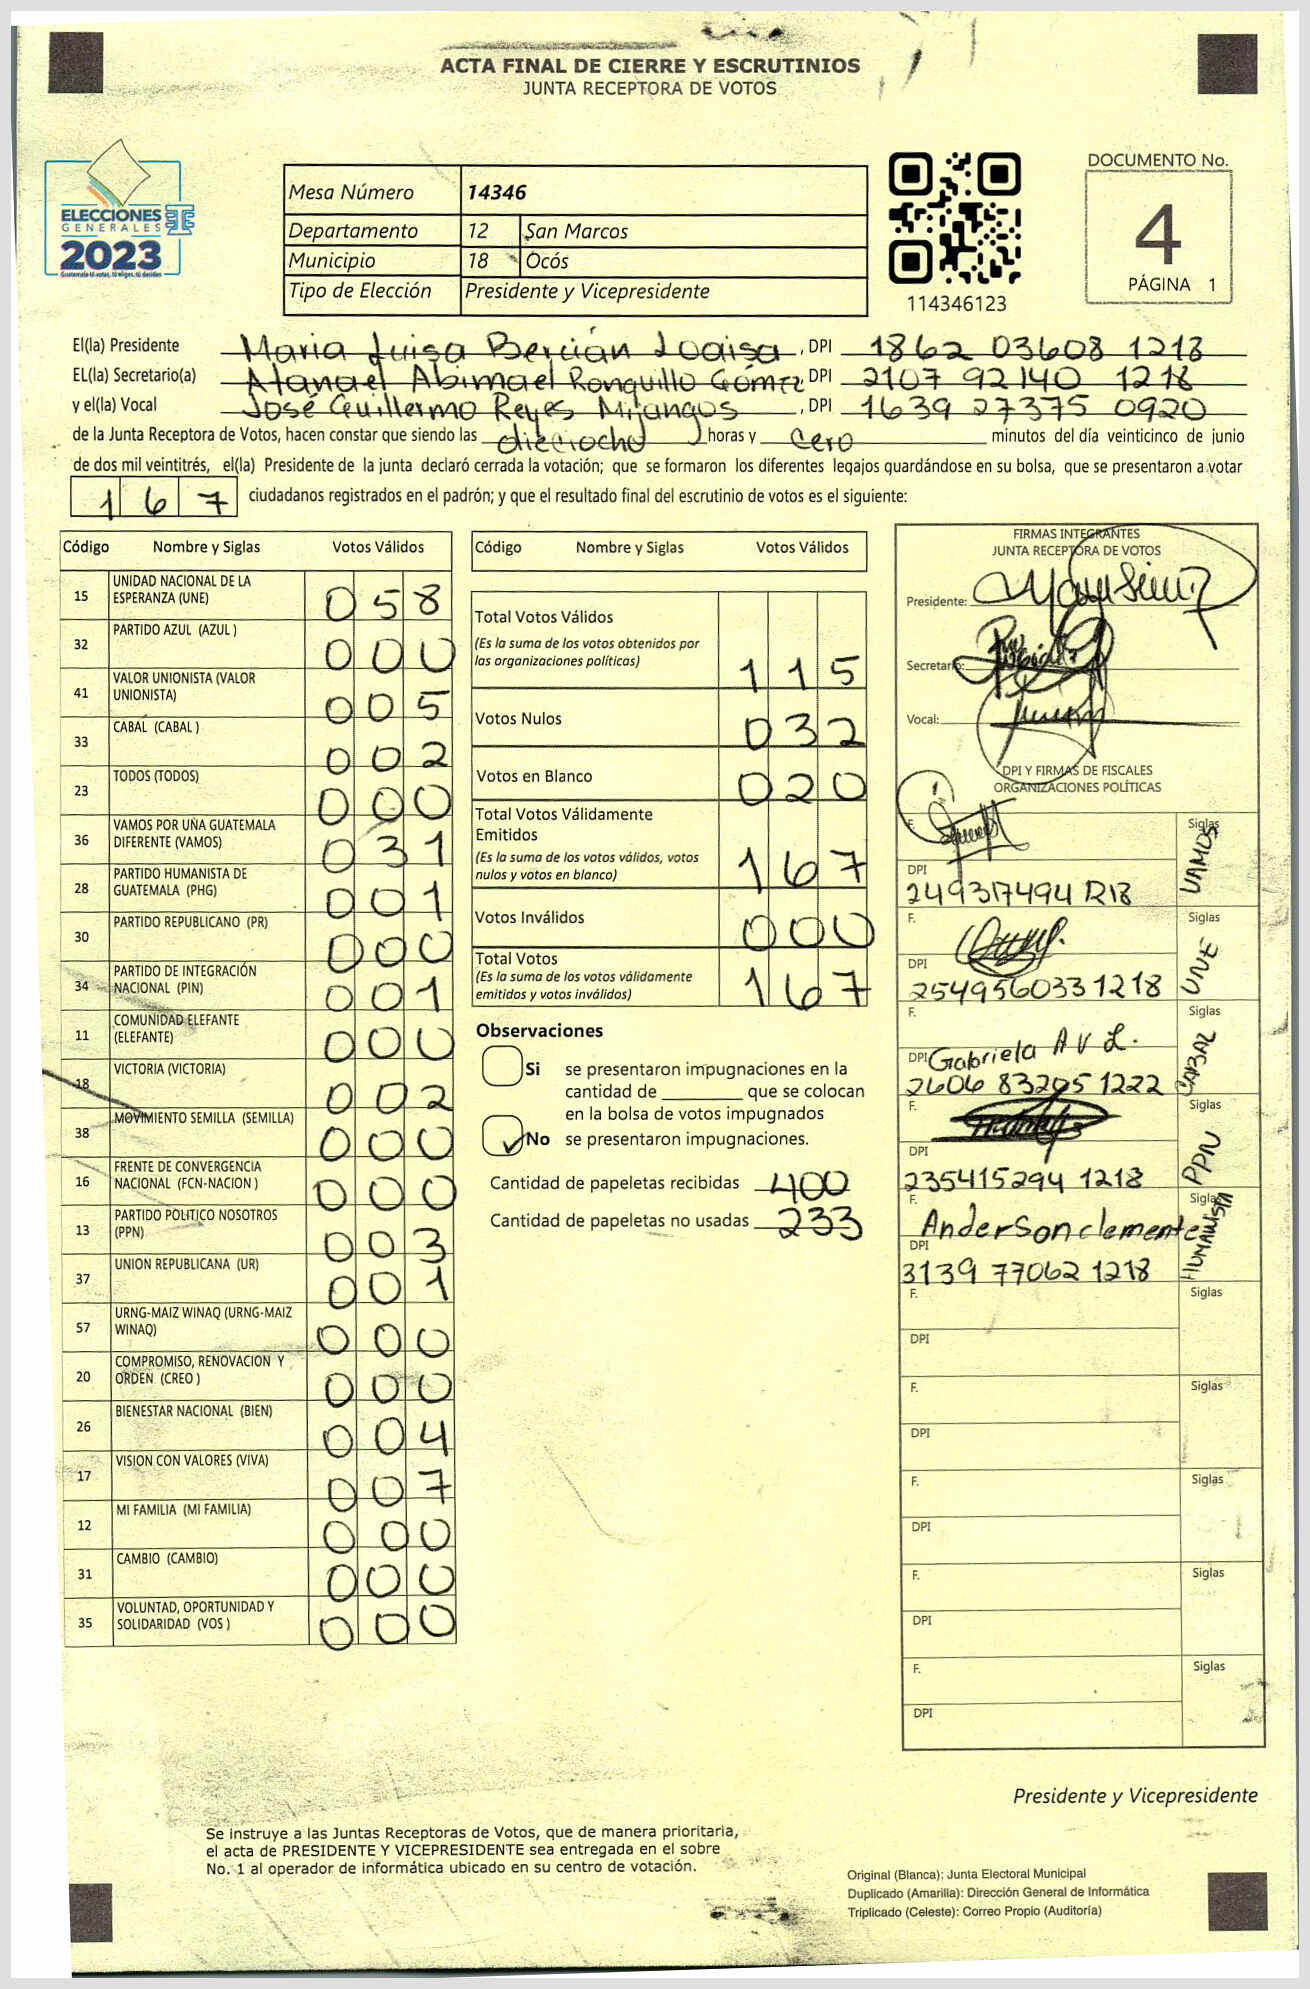 ACTA FINAL DE CIERRE Y ESCRUTINIOS
JUNTA RECEPTORA DE VOTOS
ELECCIONES
GENERALES
2023
Mesa Número 14346
Departamento 12 San Marcos
Municipio 18 Ocós
Tipo de Elección Presidente y Vicepresidente
114346123
DOCUMENTO No.
4
PÁGINA 1
El(la) Presidente Maria Luisa Bercián Loaisa, DPI 1862 03608 1218
EL(la) Secretario(a) Atanael Abimael Ronquillo Gómez DPI 2107 92140 1218
y el(la) Vocal José Guillermo Reyes Mijangos, DPI 1639 27375 0920
de la Junta Receptora de Votos, hacen constar que siendo las dieciocho horas y cero minutos del día veinticinco de junio
de dos mil veintitrés, el(la) Presidente de la junta declaró cerrada la votación; que se formaron los diferentes legajos guardándose en su bolsa, que se presentaron a votar
167 ciudadanos registrados en el padrón; y que el resultado final del escrutinio de votos es el siguiente:
Código Nombre y Siglas Votos Válidos
15 UNIDAD NACIONAL DE LA ESPERANZA (UNE) 058
32 PARTIDO AZUL (AZUL ) 000
41 VALOR UNIONISTA (VALOR UNIONISTA) 005
33 CABAL (CABAL ) 002
23 TODOS (TODOS) 000
36 VAMOS POR UNA GUATEMALA DIFERENTE (VAMOS) 031
28 PARTIDO HUMANISTA DE GUATEMALA (PHG) 001
30 PARTIDO REPUBLICANO (PR) 000
34 PARTIDO DE INTEGRACIÓN NACIONAL (PIN) 001
11 COMUNIDAD ELEFANTE (ELEFANTE) 000
18 VICTORIA (VICTORIA) 002
38 MOVIMIENTO SEMILLA (SEMILLA) 000
16 FRENTE DE CONVERGENCIA NACIONAL (FCN-NACION ) 000
13 PARTIDO POLITICO NOSOTROS (PPN) 003
37 UNION REPUBLICANA (UR) 001
57 URNG-MAIZ WINAQ (URNG-MAIZ WINAQ) 000
20 COMPROMISO, RENOVACION Y ORDEN (CREO ) 000
26 BIENESTAR NACIONAL (BIEN) 004
17 VISION CON VALORES (VIVA) 007
12 MI FAMILIA (MI FAMILIA) 000
31 CAMBIO (CAMBIO) 000
35 VOLUNTAD, OPORTUNIDAD Y SOLIDARIDAD (VOS ) 000
Código Nombre y Siglas Votos Válidos
Total Votos Válidos 115
(Es la suma de los votos obtenidos por
las organizaciones políticas)
Votos Nulos 032
Votos en Blanco 020
Total Votos Válidamente
Emitidos 167
(Es la suma de los votos válidos, votos
nulos y votos en blanco)
Votos Inválidos 000
Total Votos 167
(Es la suma de los votos válidamente
emitidos y votos inválidos)
Observaciones
Si se presentaron impugnaciones en la
cantidad de ________ que se colocan
en la bolsa de votos impugnados
No se presentaron impugnaciones.
Cantidad de papeletas recibidas 400
Cantidad de papeletas no usadas 233
FIRMAS INTEGRANTES
JUNTA RECEPTORA DE VOTOS
Presidente:
Secretario:
Vocal:
DPI Y FIRMAS DE FISCALES
ORGANIZACIONES POLÍTICAS
F. Siglas VAMOS
DPI
F. Siglas UNE
DPI 2549560331218
F. Gabriela A V L. Siglas CABAL
DPI 2606 83205 1222
F. Siglas PPN
DPI 235415294 1218
F. Anderson clemente Siglas HUMANISTA
DPI 3139 77062 1218
F. Siglas
DPI
F. Siglas
DPI
F. Siglas
DPI
F. Siglas
DPI
F. Siglas
DPI
Presidente y Vicepresidente
Se instruye a las Juntas Receptoras de Votos, que de manera prioritaria,
el acta de PRESIDENTE Y VICEPRESIDENTE sea entregada en el sobre
No. 1 al operador de informática ubicado en su centro de votación.
Original (Blanca): Junta Electoral Municipal
Duplicado (Amarilla): Dirección General de Informática
Triplicado (Celeste): Correo Propio (Auditoría)